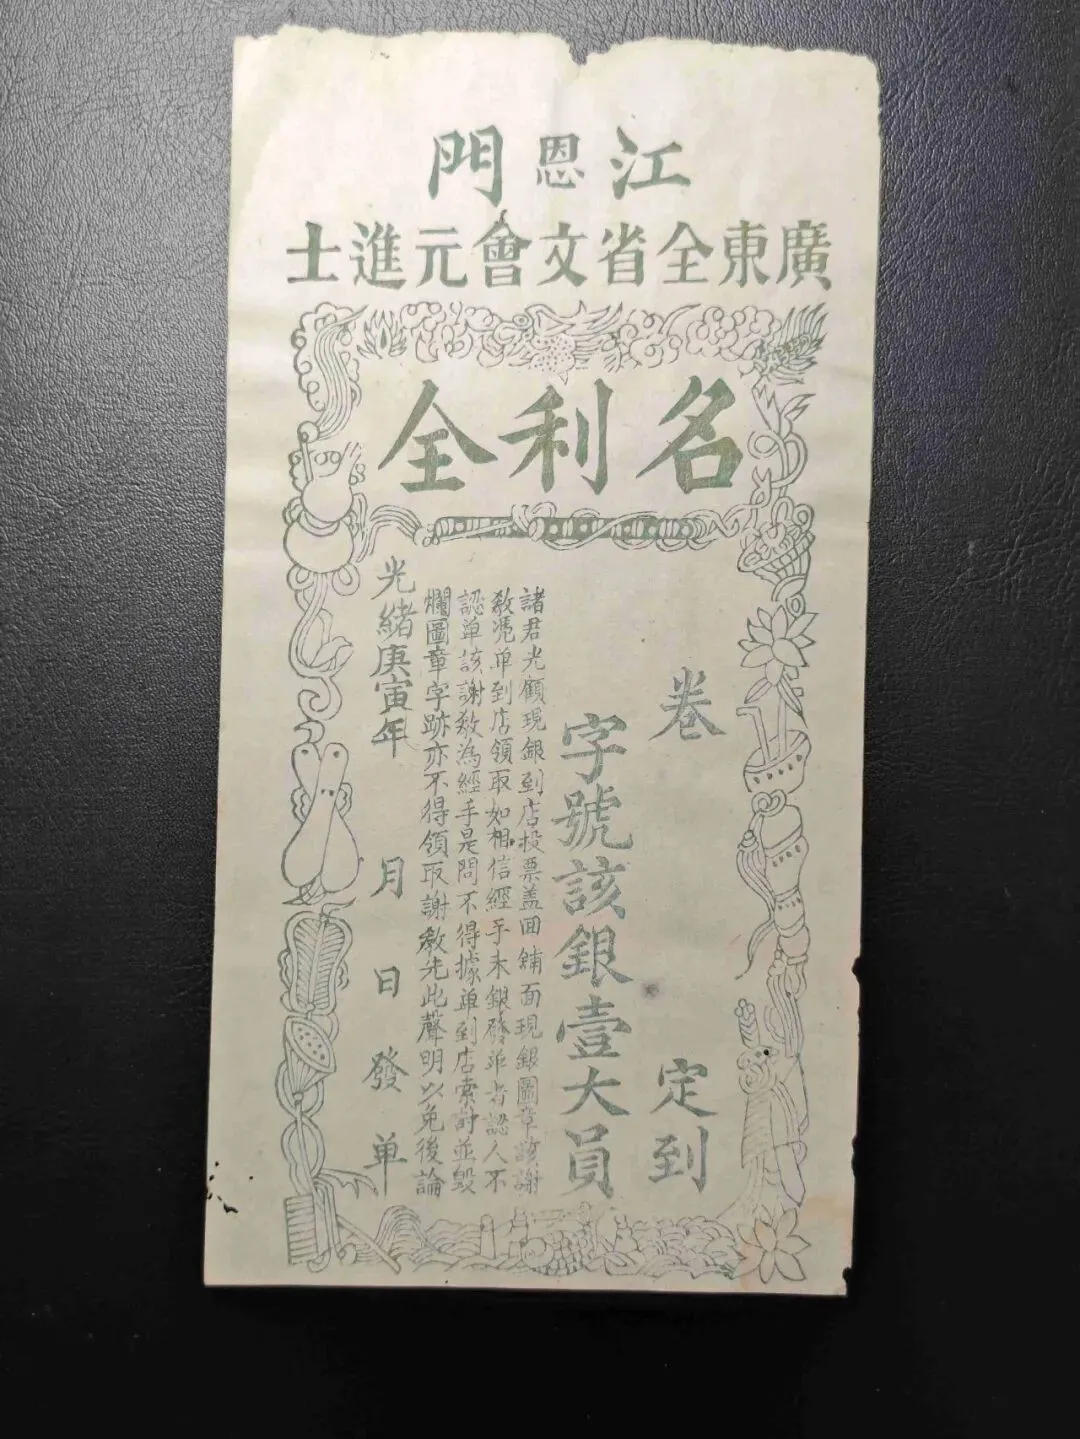 江恩門
廣東全省文會元進士
名利全
卷 定到
字號該銀壹大員
諸君光顧現銀到店投票盖回舖面現銀圖章該謝
教憑单到店領取如相信經手未銀發单者認人不
認单該謝教為經手是問不得據单到店索討並毀
爛圖章字跡亦不得領取謝教先此聲明以免後論
光緒庚寅年 月 日發单